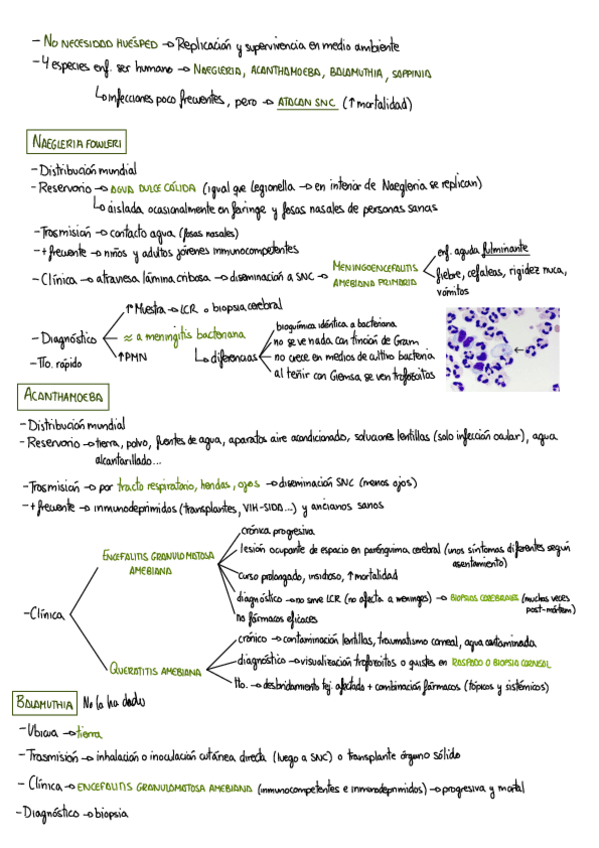 - No NECESIDAD HUÉSPED → Replicación y supervivencia en medio ambiente
- 4 especies enf. ser humano → NAEGLERIA, ACANTHAMOEBA, BALAMUTHIA, SAPPINIA
↳ infecciones poco frecuentes, pero → ATACAN SNC (↑ mortalidad)
NAEGLERIA FOWLERI
- Distribución mundial
- Reservorio → AGUA DULCE CÁLIDA (igual que Legionella → en interior de Naegleria se replican)
↳ aislada ocasionalmente en faringe y fosas nasales de personas sanas
- Trasmisión → contacto agua (fosas nasales)
- + frecuente → niños y adultos jóvenes inmunocompetentes
- Clínica → atraviesa lámina cribosa → diseminación a SNC → MENINGOENCEFALITIS AMEBIANA PRIMARIA
enf. aguda fulminante
fiebre, cefaleas, rigidez nuca, vómitos
- Diagnóstico
↑ Muestra → LCR o biopsia cerebral
≈ a meningitis bacteriana
↑ PMN
↳ diferencias
bioquímica idéntica a bacteriana
no se ve nada con tinción de Gram
no crece en medios de cultivo bacteria
al teñir con Giemsa se ven trofozoitos
- Tto. rápido
ACANTHAMOEBA
- Distribución mundial
- Reservorio → tierra, polvo, fuentes de agua, aparatos aire acondicionado, soluciones lentillas (solo infección ocular), agua
alcantarillado...
- Trasmisión → por tracto respiratorio, heridas, ojos → diseminación SNC (menos ojos)
- + frecuente → inmunodeprimidos (transplantes, VIH-SIDA...) y ancianos sanos
- Clínica
ENCEFALITIS GRANULOMATOSA
AMEBIANA
crónica progresiva
lesión ocupante de espacio en parénquima cerebral (unos síntomas diferentes según
asentamiento)
curso prolongado, insidioso, ↑ mortalidad
diagnóstico → no sirve LCR (no afecta a meninges) → BIOPSIAS CEREBRALES (muchas veces
post-mórtem)
no fármacos eficaces
QUERATITIS AMEBIANA
crónico → contaminación lentillas, traumatismo corneal, agua contaminada
diagnóstico → visualización trofozoitos o quistes en RASPADO O BIOPSIA CORNEAL
tto. → desbridamiento tej. afectado + combinación fármacos (tópicos y sistémicos)
BALAMUTHIA No la ha dado
- Ubicua → tierra
- Trasmisión → inhalación o inoculación cutánea directa (luego a SNC) o transplante órgano sólido
- Clínica → ENCEFALITIS GRANULOMATOSA AMEBIANA (inmunocompetentes e inmunodeprimidos) → progresiva y mortal
- Diagnóstico → biopsia